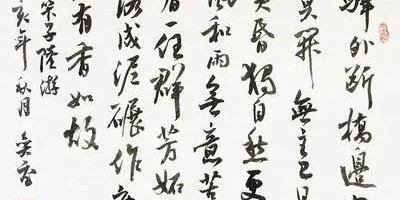 驛外斷橋邊
開無主已
黃昏獨自愁更
風和雨無意苦
春一任群芳妬
落成泥碾作塵
有香如故
陸游
亥年秋月